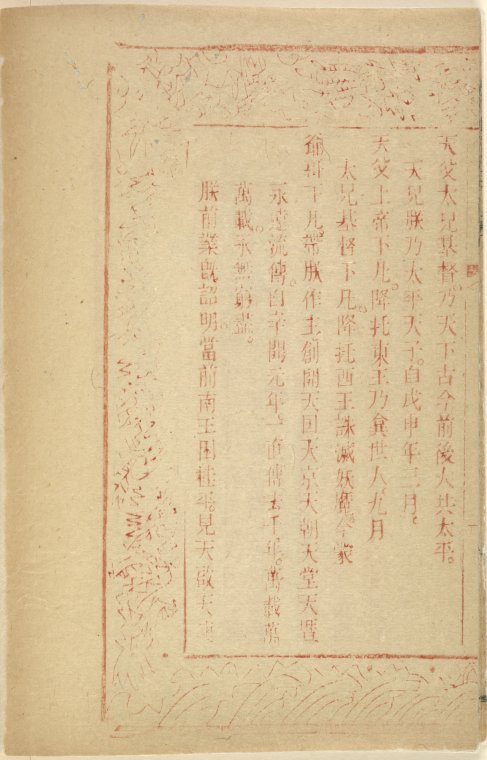 天父太兄基督。乃天下古今前後人共太平。
天兄朕乃太平天子。自戊申年三月。
天父上帝下凡。降托東王乃食世人九月
太兄基督下凡。降托西王誅滅妖魔。今蒙
爺哥下凡。帶朕作主創開天国天京天朝天堂天曆
永遠流傳。自辛開元年。一直傳去千年。萬載萬
萬載。永無窮盡。
朕前業既詔明當前南王困桂平。見天啟天